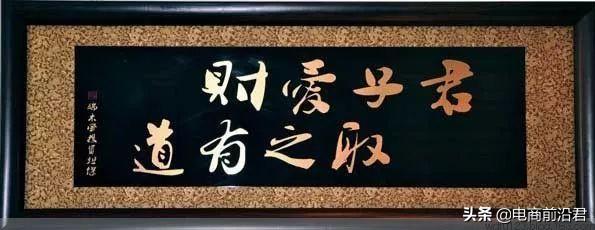 君子愛財
取之有道
头条 @电商前沿君